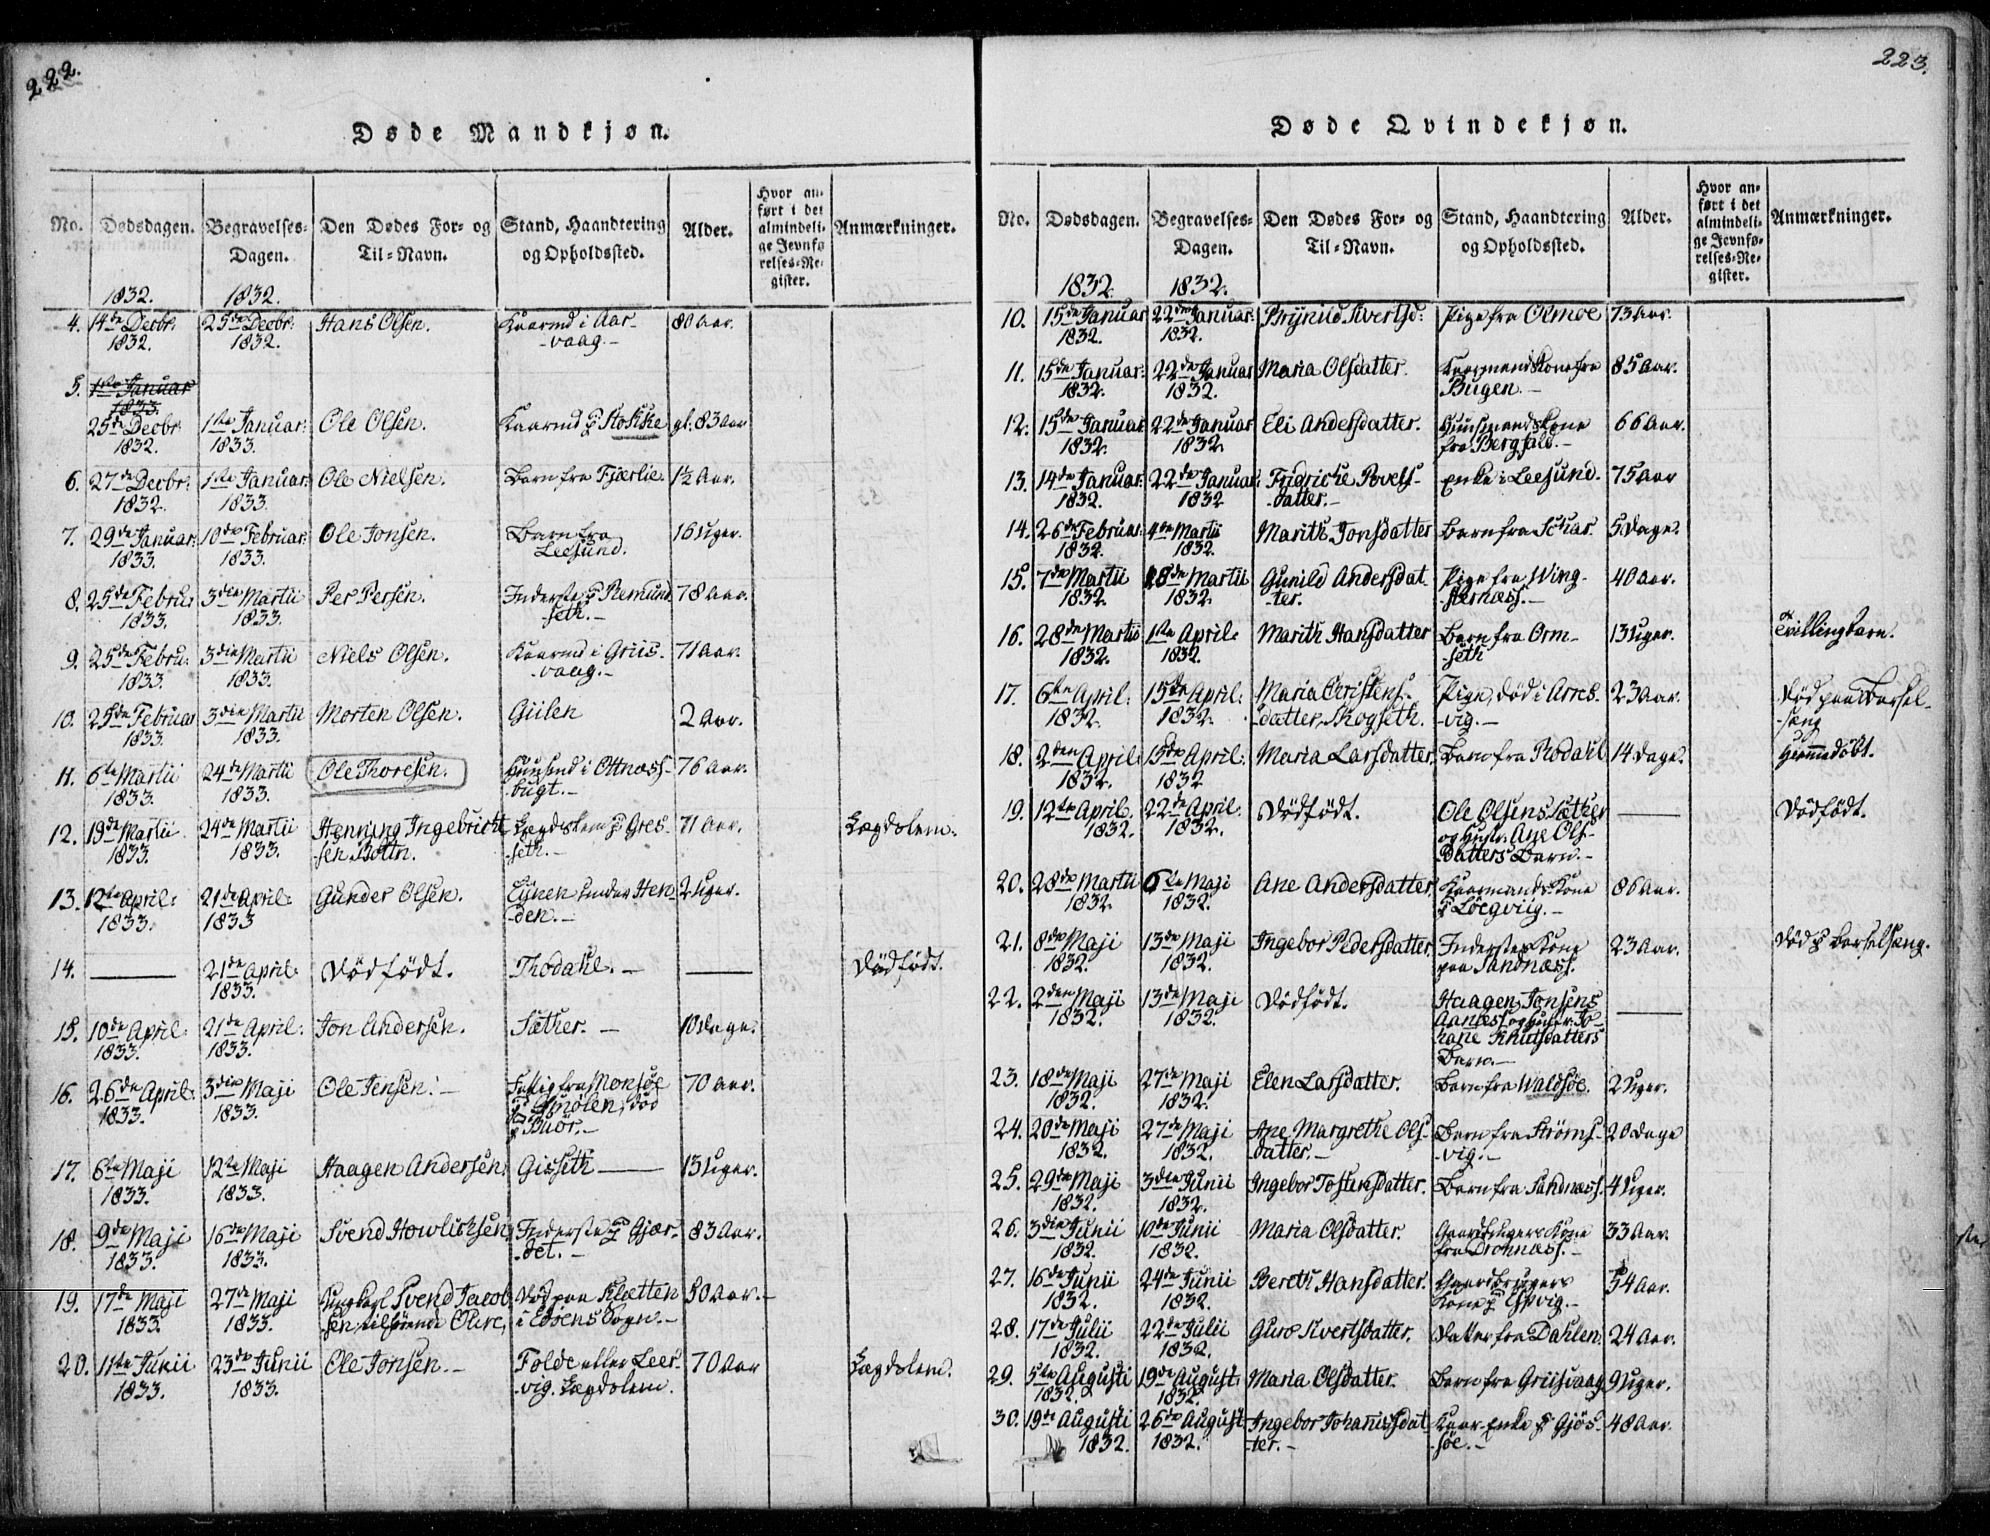 222.
Døde Mandkjøn.
No. Dødsdagen. Begravelses-Dagen. Den Dødes For- og Til-Navn. Stand, Haandtering og Opholdssted. Alder. Hvor anført i det almindelige Jevnførelses-Register. Anmærkninger.
1832. 1832.
4. 14de Decbr: 25de Decbr: Hans Olsen. Kaarmd i Aar- 80 Aar.
1832. 1832. -vaag.-
5. 1ste Januar
1833.
25de Decbr: 1ste Januar: Ole Olsen. Kaarmd p Stokke gl. 83 Aar
1832. 1833.
6. 27de Decbr: 1ste Januar: Ole Nielsen. Barn fra Fjærlie. 1½ Aar.
1832. 1833.
7. 29de Januar: 10de Februar: Ole Jonsen. Barn fra 16 Uger.
1833. 1833. Leesund.
8. 25de Febru: 3die Martii Per Persen. Inderste p Remund- 78 Aar.
1833. 1833. -seth.-
9. 25de Febru: 3die Martii Niels Olsen. Kaarmd i Griis- 71 Aar.
1833. 1833. -vaag.-
10. 25de Februar 3die Martii Morten Olsen. Gulen 2 Aar.
1833. 1833.
11. 6te Martii 24de Martii Ole Thoresen. Huusmd i Ottnæss- 76 Aar.
1833. 1833. -bugt.-
12. 19de Martii 24de Martii Henning Ingebricht- Lægdslem p Gres- 71 Aar. Lægdslem.
1833. 1833. -sen Bottn. -seth.-
13. 12te April: 21de April: Gunder Olsen. Eynen under Hen- 2 Uger.
1833. 1833 -den.-
14. — 21de April: Dödfödt. Thodahl.- — Dødfødt.
1833.
15. 10de April: 21de April: Jon Andersen. Sæther.- 10 dage.
1833. 1833.
16. 26de April: 3die Maji Ole Jensen.- Fattig fra Monsøe 70 Aar.
1833. 1833. p Smølen, død
p Buør.-
17. 6te Maji 12te Maji Haagen Andersen. Gisseth — 13 Uger.
1833. 1833.
18. 9de Maji 16de Maji Svend Howlichsen Inderste p Gjær- 83 Aar.
1833. 1833. -det.-
19. 17de Maji 27de Maji Ungkarl Svend Jacob- Død paa Kletten 50 Aar.-
1833. 1833. sen tilhørende Øure, i Edøens Sogn.-
20. 11te Junii 23de Junii Ole Jonsen.- Folde eller Leer- 70 Aar Lægdslem.
1833. 1833. -vig. Lægdslem.
223.
Døde Qvindekjøn.
No. Dødsdagen. Begravelses-Dagen. Den Dødes For- og Til-Navn. Stand, Haandtering og Opholdssted. Alder. Hvor anført i det almindelige Jevnførelses-Register. Anmærkninger.
1832 1832.
10. 15de Januar 22de Januar: Brynild Ivertsd: Pige fra Olmøe 73 Aar.
1832. 1832.
11. 15de Januar: 22de Januar Maria Olsdatter. Kaarmands Kone fra 85 Aar.
1832. 1832. Bugen.-
12. 15de Januar 22de Januar: Eli Andersdatter. Huusmandskone 66 Aar.
1832. 1832 fra Bergfald.-
13. 14de Januar: 22de Januar: Fridriche Povels- Enke i Leesund. 75 Aar
1832. 1832 -datter.-
14. 26de Februar: 4de Martii Marith Jonsdatter Barn fra Schar. 5 dage.
1832. 1832.
15. 7de Martii 18de Martii Gunild Andersdat- Pige fra Wing- 40 Aar.
1832. 1832. -ter. -sternæss.-
16. 28de Martii 1ste April: Marith Hansdatter Barn fra Orm- 13 Uger. Tvillingbarn.
1832. 1832. -seth
17. 6te April: 15de April: Maria Christens- Pige, død i Arres- 23 Aar. Død paa Barsel-
1832. 1832. -datter, Skogseth. -vig.- -seng
18. 2den April: 15de April: Maria Larsdatter. Barn fra Rodahl 14 dage. Hjemmedöbt.
1832. 1832
19. 12te April. 22de April: Dödfödt. Ole Olsens Sæther — Dödfödt.
1832. 1832. og Hustr. Ane Ols-
datters Barn.-
20. 28de Martii 6te Maji Ane Andersdatter Kaarmands Kone 86 Aar.
1832. 1832. p Løegviig.-
21. 8de Maji 13de Maji Ingebor Pedersdatter. Inderstes Kone 23 Aar. Död p Barselseng.
1832. 1832. paa Sandnæss.
22. 2den Maji 13de Maji Dödfödt. Haagen Jonsens —
1832. 1832. Aanæss og Hustr. Jo-
hane Knutsdatters
Barn.-
23. 18de Maji 27de Maji Elen Larsdatter. Barn fra Waldsøe. 2 Uger.
1832. 1832.
24. 20de Maji 27de Maji Ane Margrethe Ols- Barn fra Ströms- 20 dage
1832. 1832. datter.- -vig.-
25. 29de Maji 3die Junii Ingebor Tostensdatter. Barn fra Sandnæss. 4 Uger.
1832. 1832.
26. 3die Junii 10de Junii Maria Olsdatter. Gaardbrugers Kone 33 Aar
1832. 1832. fra Dromnæss.-
27. 16de Junii 24de Junii Bereth Hansdatter. Gaardbrugers 54 Aar.
1832. 1832. Kone p Espvig.-
28. 17de Julii 22de Julii Guro Ivertsdatter. Datter fra Dahlen. 24 Aar.
1832. 1832.
29. 5te Augusti 19de August: Maria Olsdatter. Barn fra Griisvaag 9 Uger.
1832. 1832.
30. 19de Augusti 26de August: Ingebor Johannsdat- Kaar-Enke p Gjøs- 48 Aar.
1832. 1832. -ter.- -søe.-